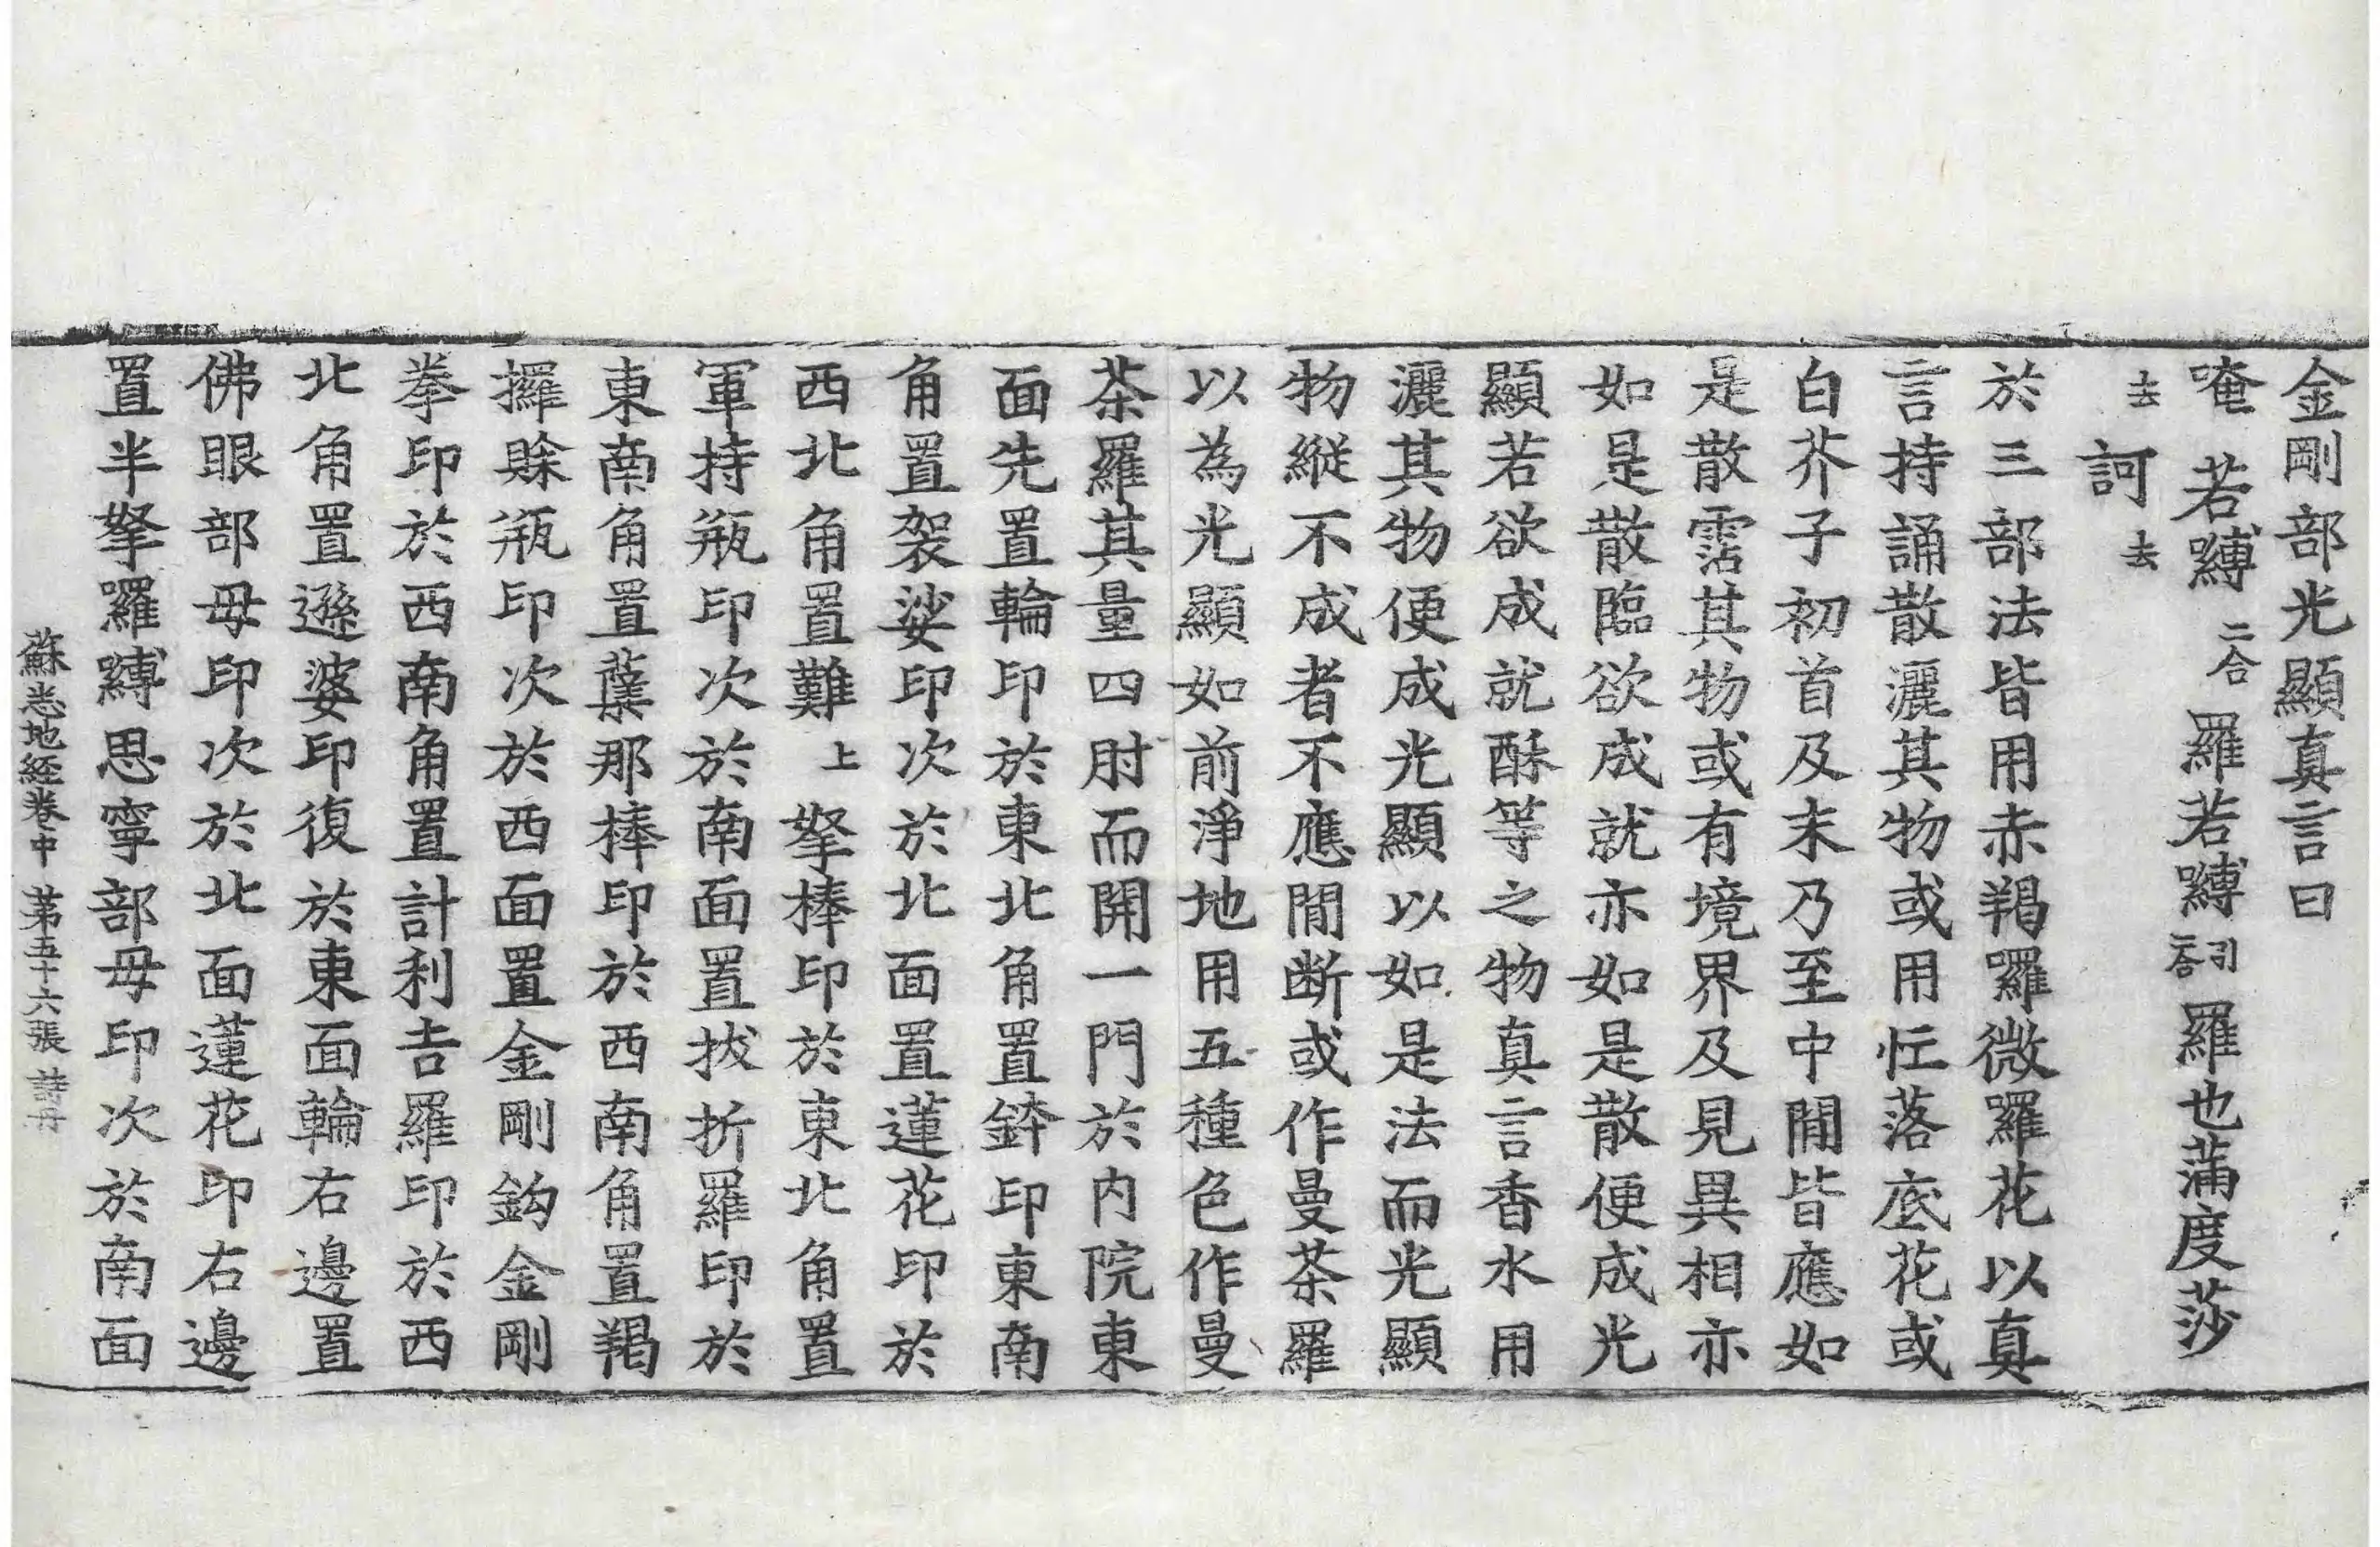 金剛部光顯真言曰
唵若嚩二合羅若嚩二合引羅也蒲度莎
去訶去
於三部法皆用赤羯囉微囉花以真
言持誦散灑其物或用忙落底花或
白芥子初首及末乃至中閒皆應如
是散霑其物或有境界及見異相亦
如是散臨欲成就亦如是散便成光
顯若欲成就酥等之物真言香水用
灑其物便成光顯以如是法而光顯
物縱不成者不應閒断或作曼荼羅
以為光顯如前淨地用五種色作曼
荼羅其量四肘而開一門於内院東
面先置輪印於東北角置鉢印東南
角置袈裟印次於北面置蓮花印於
西北角置難上拏棒印於東北角置
軍持瓶印次於南面置拔折羅印於
東南角置蘗那棒印於西南角置羯
攞賒瓶印次於西面置金剛鈎金剛
拳印於西南角置計利吉羅印於西
北角置遜婆印復於東面輪右邊置
佛眼部母印次於北面蓮花印右邊
置半拏囉嚩思寧部母印次於南面
蘇悉地経卷中 第五十六張 詩